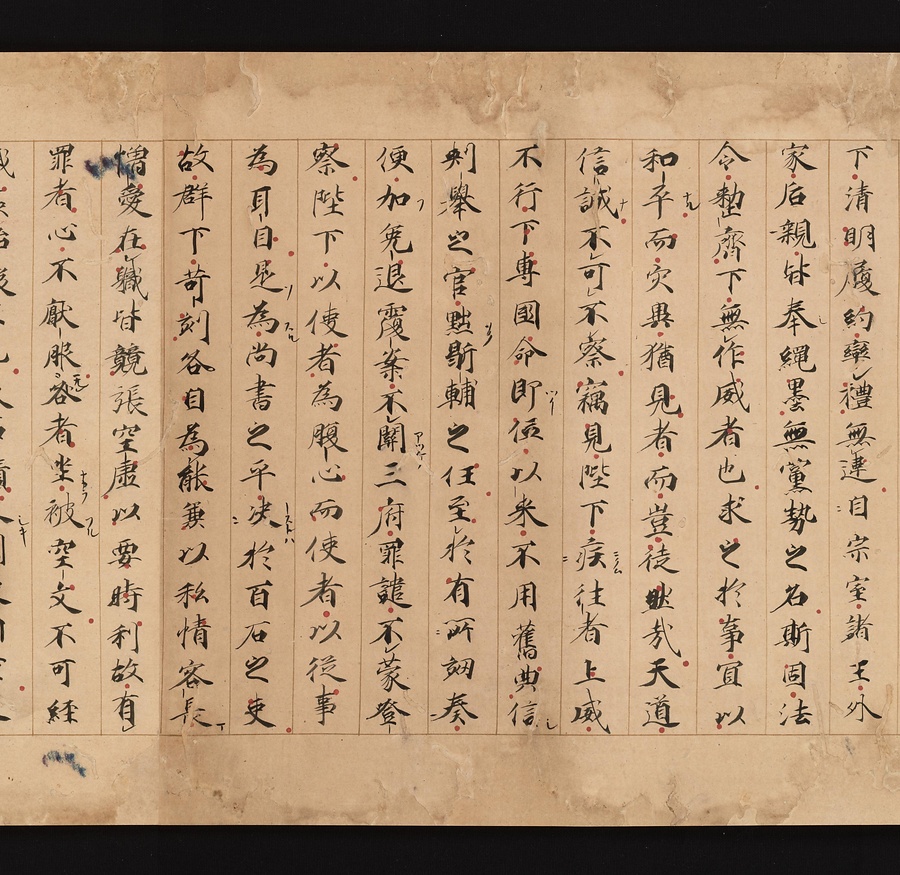 下清明履約率禮無違自宗室諸王外
家后親皆奉繩墨無黨勢之名斯固法
令勅齊下無作威者也求之於事宜以
和平而灾異猶見者而豈徒然哉天道
信誠不可不察竊見陛下疾往者上威
不行下專國命即位以来不用舊典信
刺舉之官黜斯輔之任至於有所劾奏
便加免退覆案不關三府罪譴不蒙登
察陛下以使者為腹心而使者以從事
為耳目是為尚書之平决於百石之吏
故群下苛刻各自為能兼以私情容長
憎愛在職皆競張空虛以要時利故有
罪者心不厭服咎者坐被空文不可經